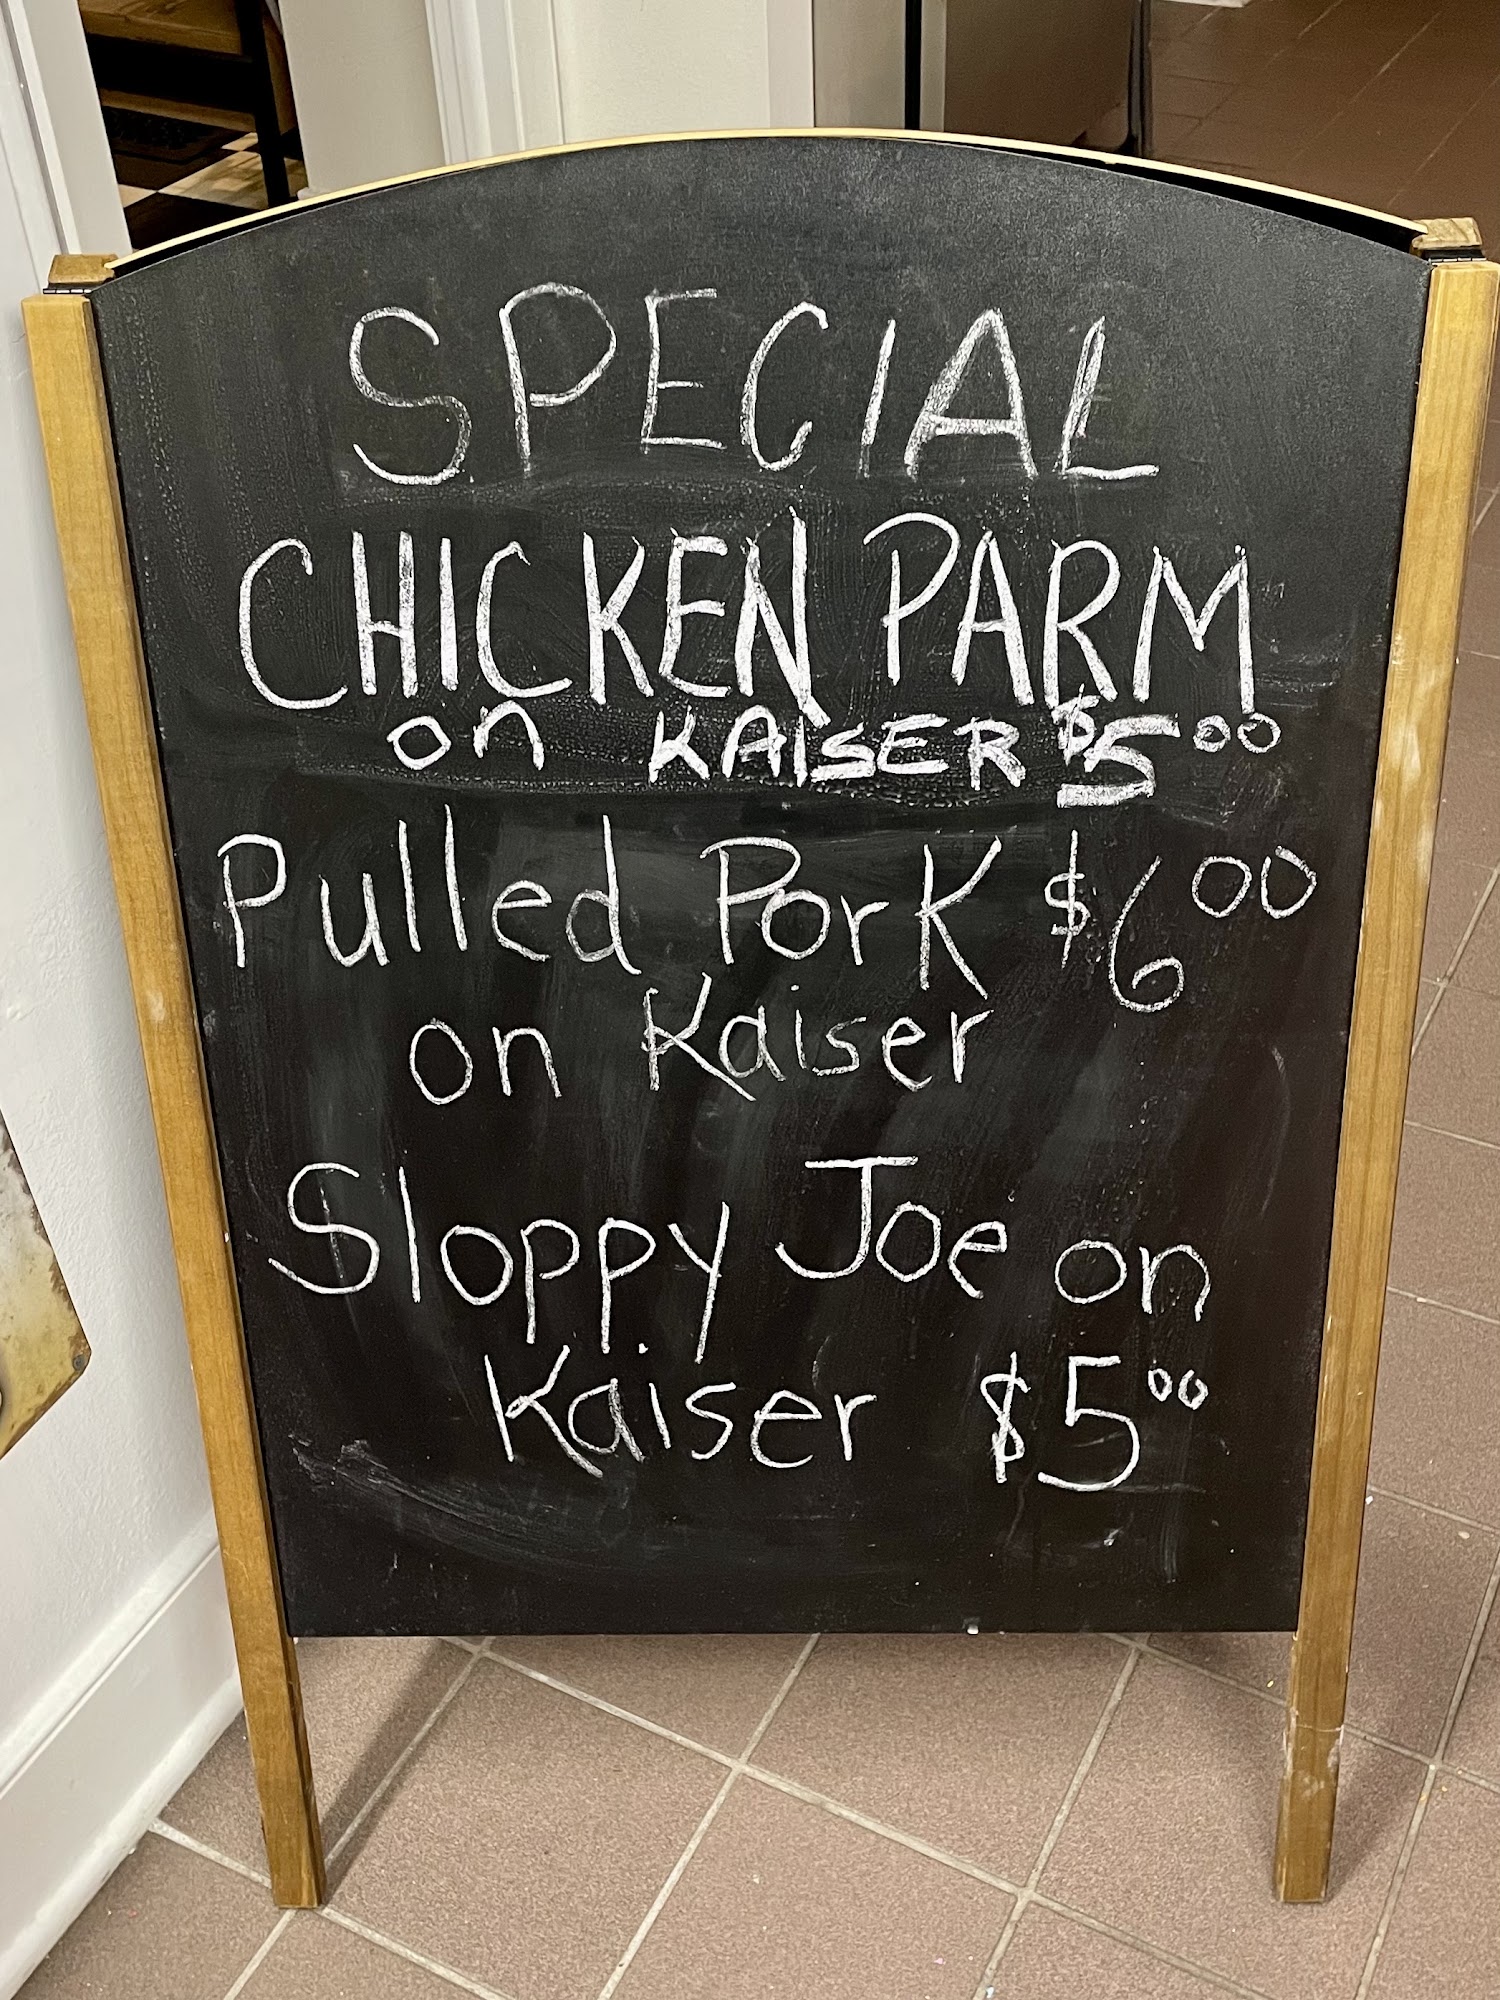 SPECIAL
CHICKEN PARM
on KAISER $5.00
Pulled Pork $6.00
on Kaiser
Sloppy Joe on
Kaiser $5.00